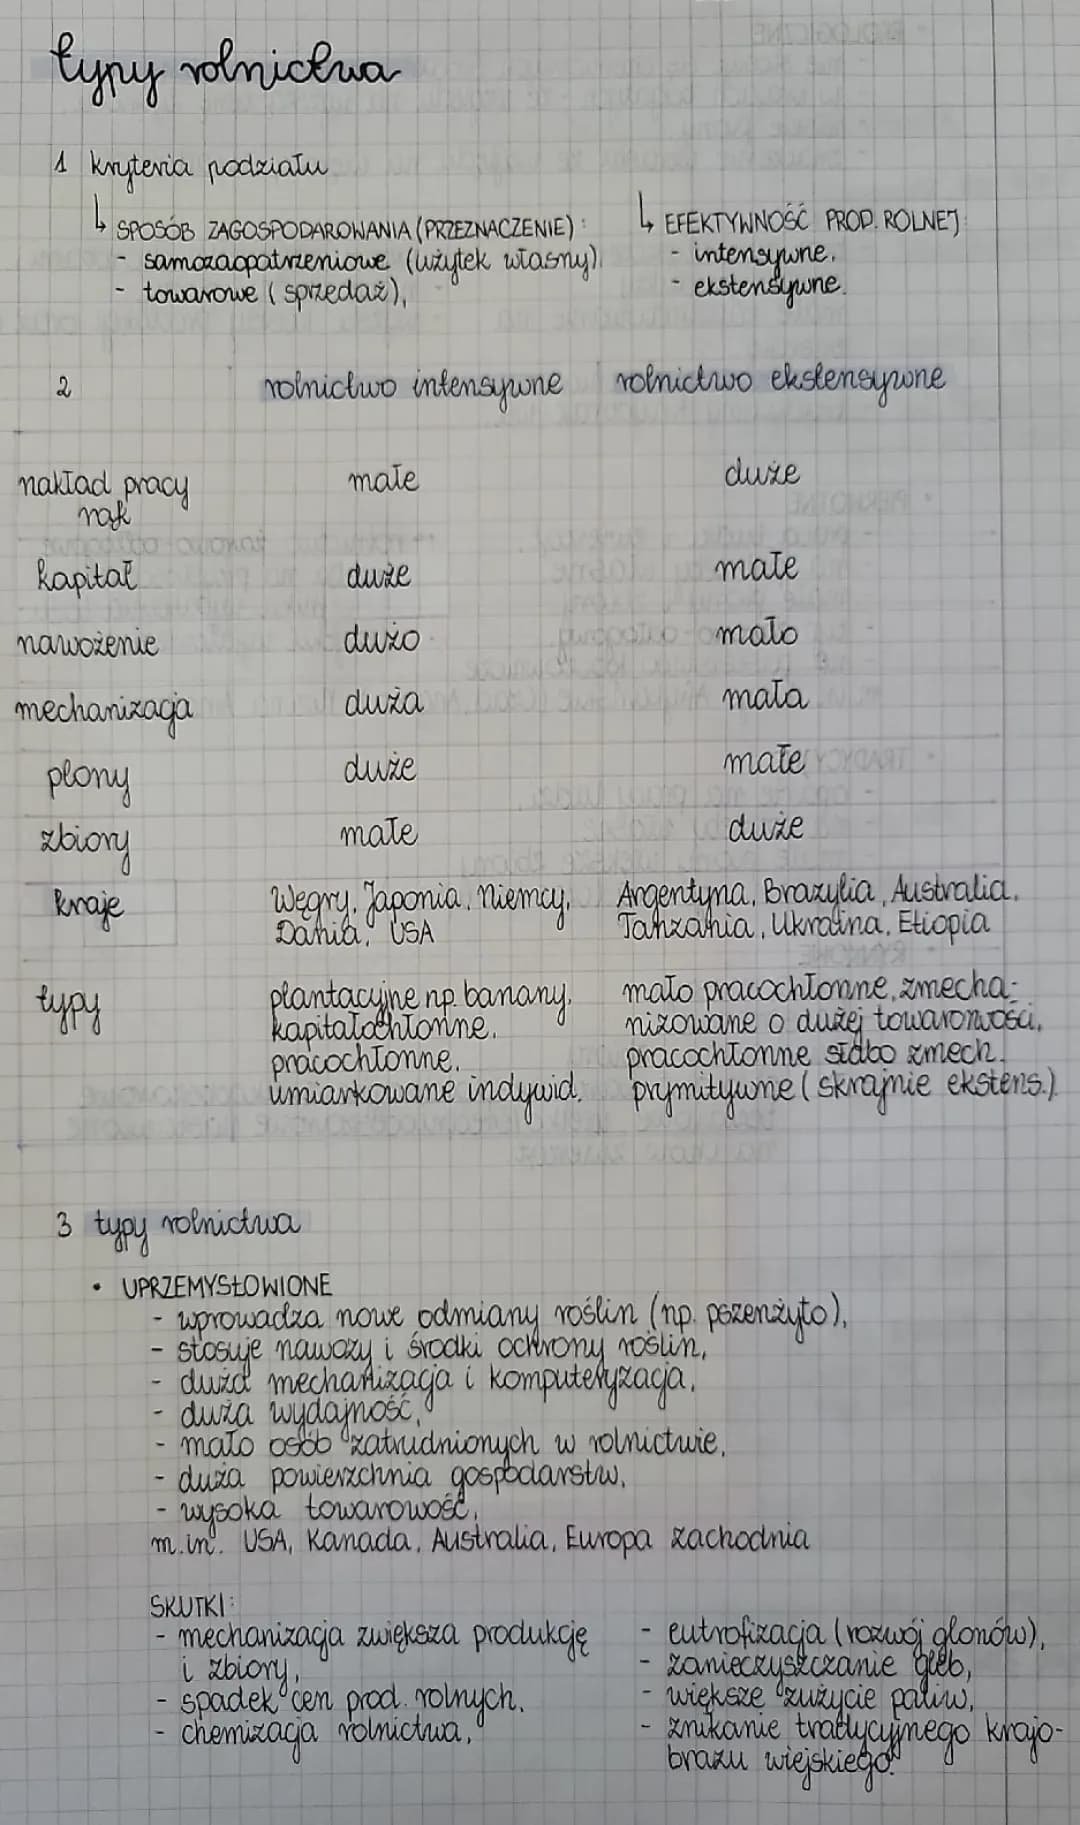 typy rolnictwa
1 kryteria podziału
↳ SPOSÓB ZAGOSPODAROWANIA (PRZEZNACZENIE):
- samozaopatrzeniowe (użytek własny),
- towarowe (sprzedaż),
↳ EFEKTYWNOŚĆ PROD. ROLNEJ:
- intensywne,
- ekstensywne.
2 rolnictwo intensywne rolnictwo ekstensywne
nakład pracy rąk małe duże
kapitał duże małe
nawożenie dużo mało
mechanizacja duża mała
plony duże małe
zbiory małe duże
kraje Węgry, Japonia, Niemcy, Argentyna, Brazylia, Australia,
Dania, USA Tanzania, Ukraina, Etiopia
typy plantacyjne np. banany, mało pracochłonne, zmecha-
kapitałochłonne, nizowane o dużej towarowości,
pracochłonne, pracochłonne słabo zmech.
umiarkowane indywid. prymitywne (skrajnie ekstens.)
3 typy rolnictwa
• UPRZEMYSŁOWIONE
- wprowadza nowe odmiany roślin (np. pszenżyto),
- stosuje nawozy i środki ochrony roślin,
- duża mechanizacja i komputeryzacja,
- duża wydajność,
- mało osób zatrudnionych w rolnictwie,
- duża powierzchnia gospodarstw,
- wysoka towarowość,
m.in. USA, Kanada, Australia, Europa zachodnia
SKUTKI:
- mechanizacja zwiększa produkcję
i zbiory,
- spadek cen prod. rolnych,
- chemizacja rolnictwa,
- eutrofizacja (rozwój glonów),
- zanieczyszczanie gleb,
- większe zużycie paliw,
- znikanie tradycyjnego krajo-
brazu wiejskiego.